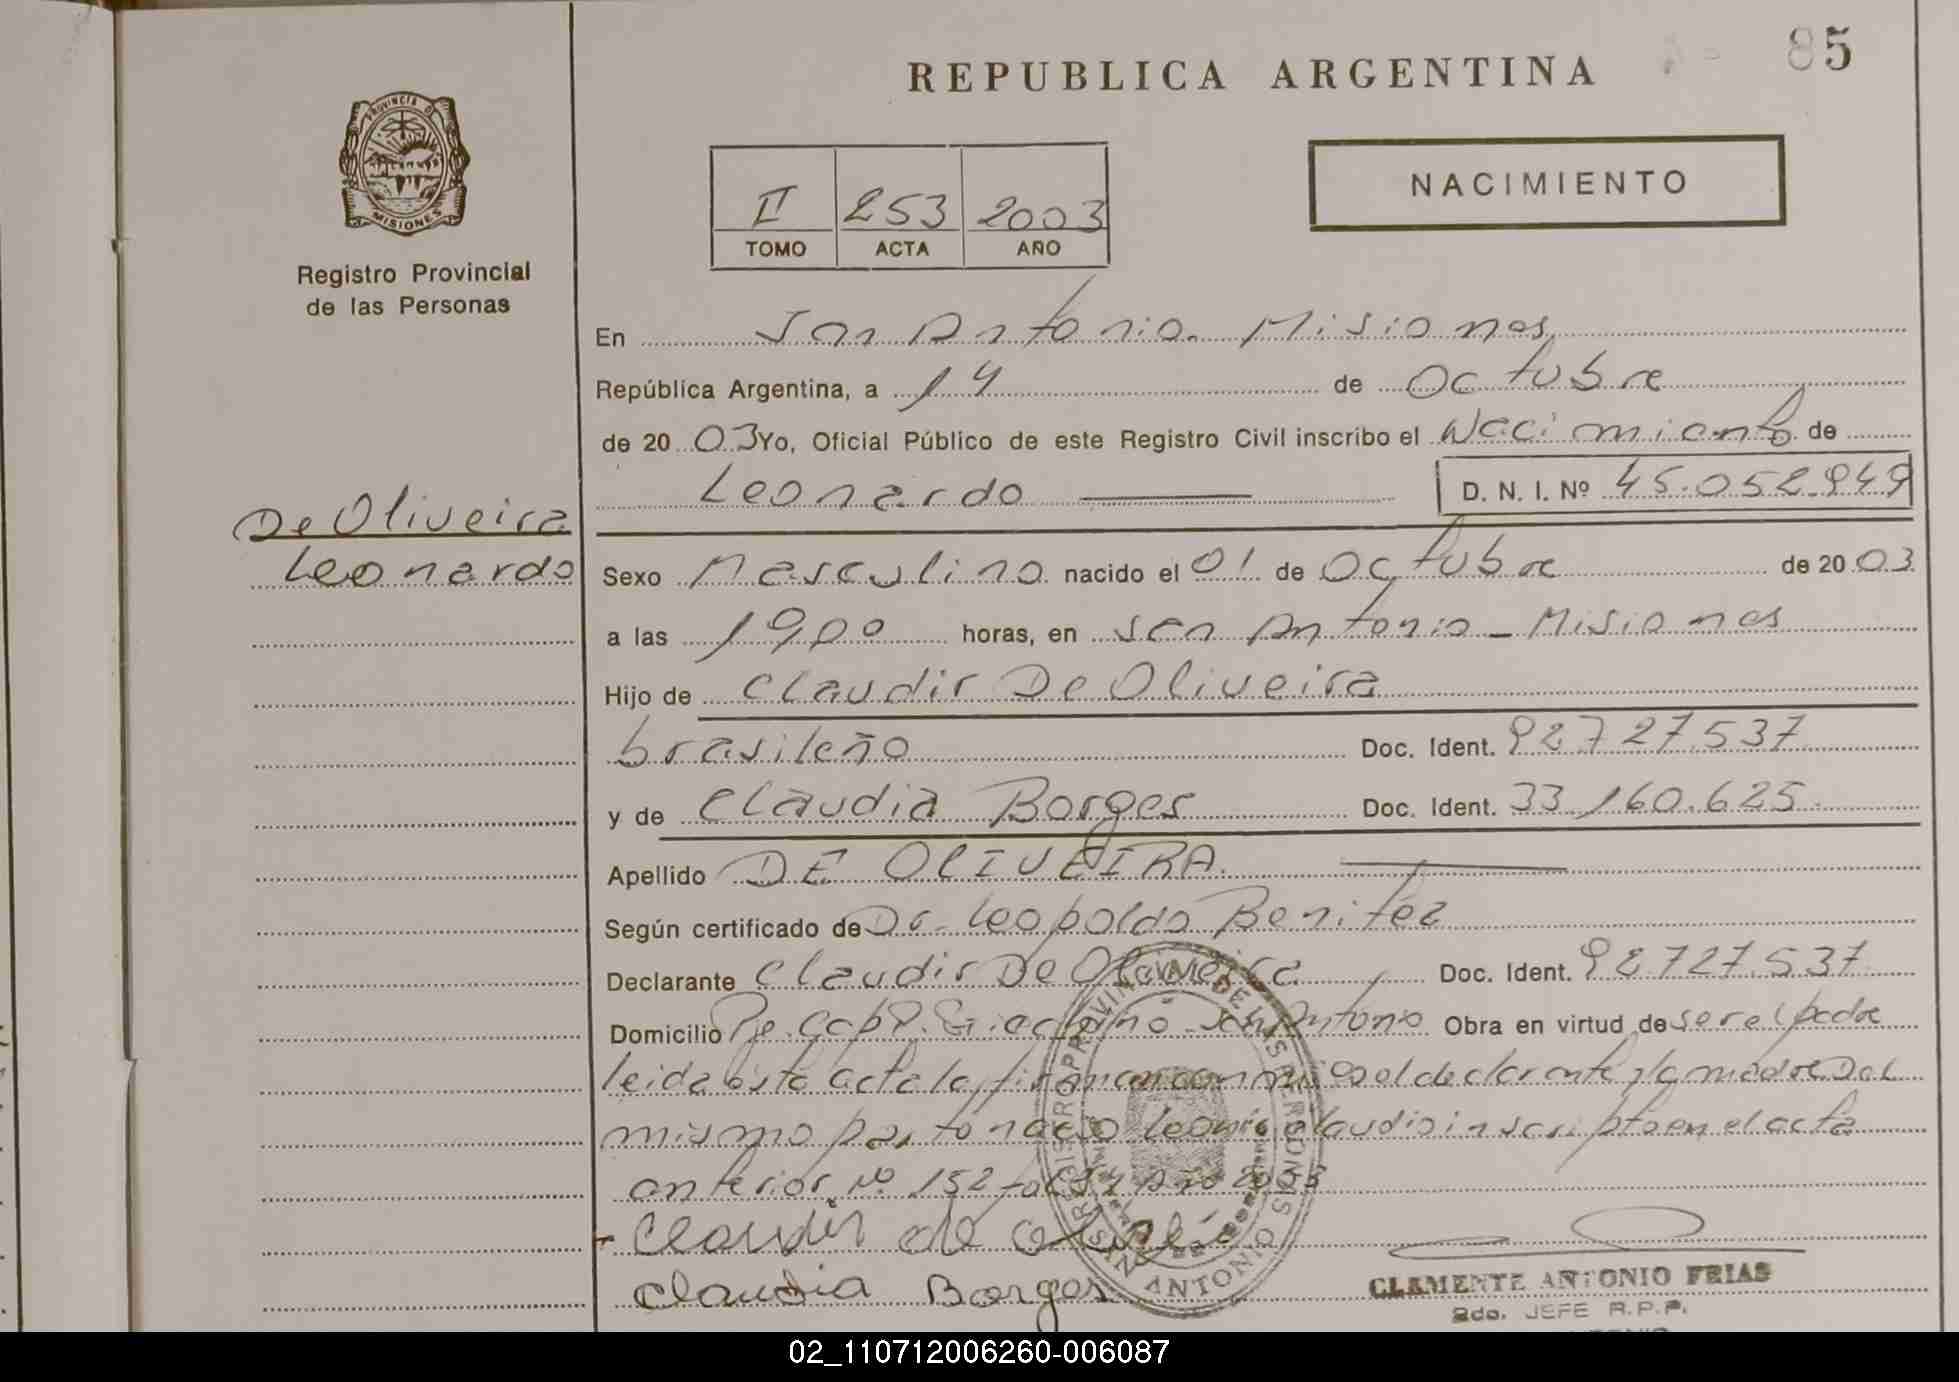 85
REPUBLICA ARGENTINA
PROVINCIA DE
MISIONES
Registro Provincial
de las Personas
NACIMIENTO
II 253 2003
TOMO ACTA AÑO
En San Antonio. Misiones,
República Argentina, a 14 de Octubre
de 20 03 Yo, Oficial Público de este Registro Civil inscribo el Nacimiento de
Leonardo D. N. I. Nº 45.052.949
De Oliveira
Leonardo
Sexo Masculino nacido el 01 de Octubre de 20 03
a las 19,00 horas, en San Antonio - Misiones
Hijo de Claudir De Oliveira
brasileño Doc. Ident. 92727.537
y de Claudia Borges Doc. Ident. 33.160.625.
Apellido DE OLIVEIRA.
Según certificado de Dr. Leopoldo Benitez
Declarante Claudir De Oliveira Doc. Ident. 92.727.537
Domicilio San Antonio Obra en virtud de ser el padre
leida esta acta la firman conmigo el declarante y la madre Del
mismo parto nacio inscripto en el acta
anterior Nº 152 Año 2003
Claudir de
Claudia Borges
REGISTRO PROVINCIAL DE LAS PERSONAS
SAN ANTONIO
CLEMENTE ANTONIO FRIAS
2do. JEFE R.P.P.
02_110712006260-006087